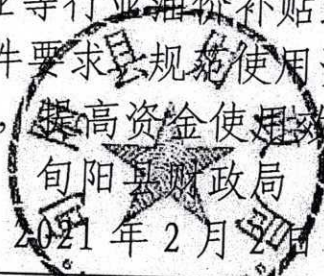 等行业油价补贴
件要求,规范使用
,提高资金使用效
旬阳县财政局
2021年2月2日